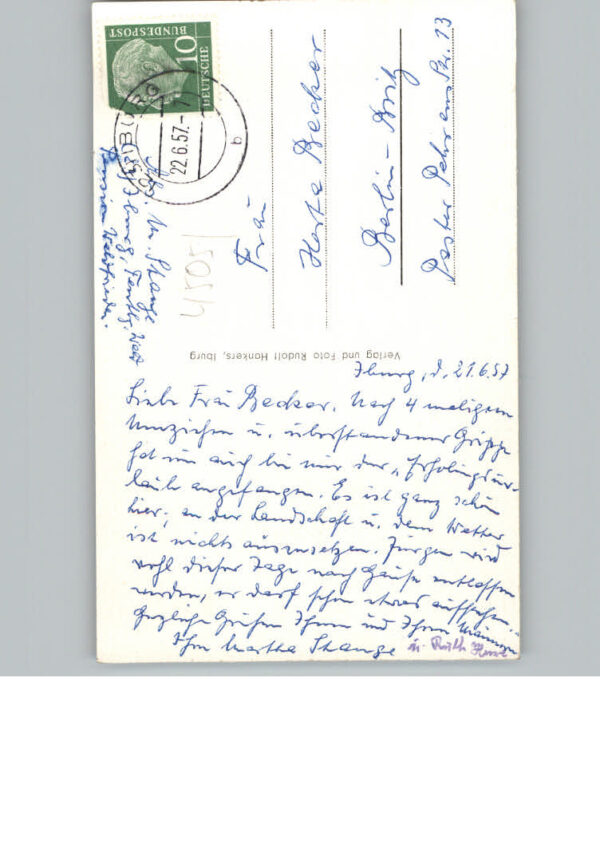 DEUTSCHE
BUNDESPOST
10
IBURG
22.6.57.-7
b
Abs. M. Stange
Iburg, Teutbg. Wald
Pension Waldfrieden.
4505
Frau
Herta Becker
Berlin-Britz
Pastor Behrens Str. 13
Verlag und Foto Rudolf Honkers, Iburg
Iburg, d. 21.6.57
Liebe Frau Becker. Nach 4 maligem
Umziehen u. überstandener Grippe
hat nun auch bei mir der „Erholungsur-
laub" angefangen. Es ist ganz schön
hier, an der Landschaft u. dem Wetter
ist nichts auszusetzen. Jürgen wird
wohl dieser Tage nach Hause entlassen
werden, er darf schon etwas aufstehen.
Herzliche Grüße Ihnen und Ihrem
Ihre Martha Stange u. Ruth